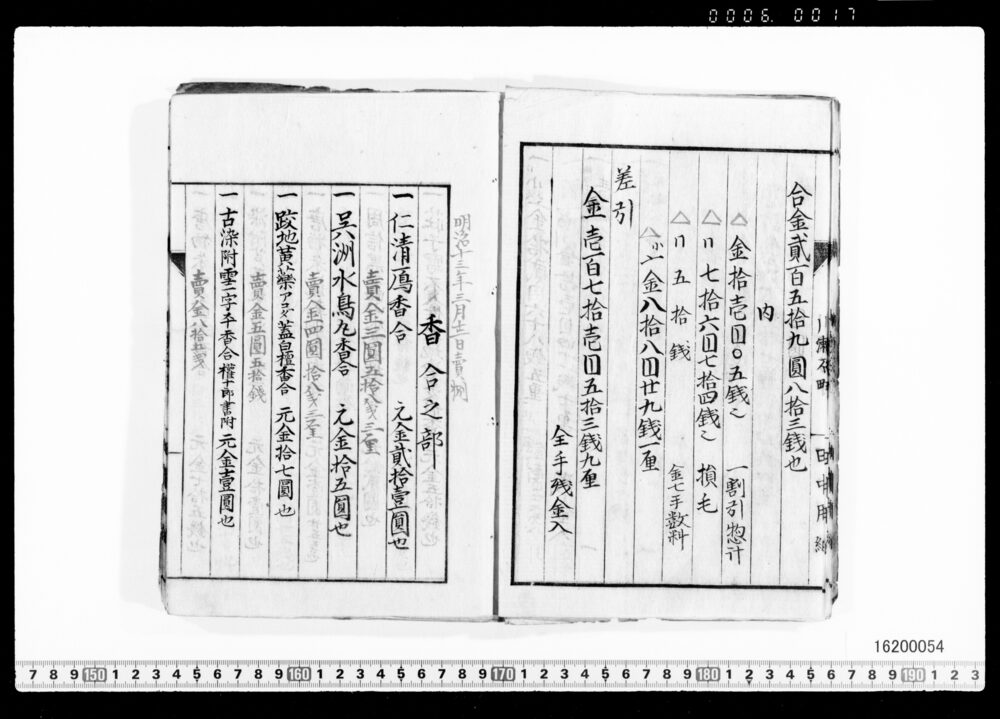 0006.0017
合金貳百五拾九圓八拾三銭也
内
△ 金拾壱円〇五銭也 一割引惣計
△ 〃七拾六円七拾四銭也 損毛
△ 〃五拾銭 金七手数料
〆金八拾八円廿九銭一厘
差引
金壱百七拾壱円五拾三銭九厘
全手残金入
明治十三年三月十二日賣捌
香合之部
一仁清鳫香合 元金貳拾壹圓也
賣金三圓五拾八銭三厘
一呉洲水鳥丸香合 元金拾五圓也
賣金四圓拾八銭三厘
一跤地黄薬アコダ蓋白檀香合 元金拾七圓也
賣金五圓五拾銭
一古染附雲一字平香合權十郎書附 元金壹圓也
賣金八拾五銭
16200054
7 8 9 150 1 2 3 4 5 6 7 8 9 160 1 2 3 4 5 6 7 8 9 170 1 2 3 4 5 6 7 8 9 180 1 2 3 4 5 6 7 8 9 190 1 2 3